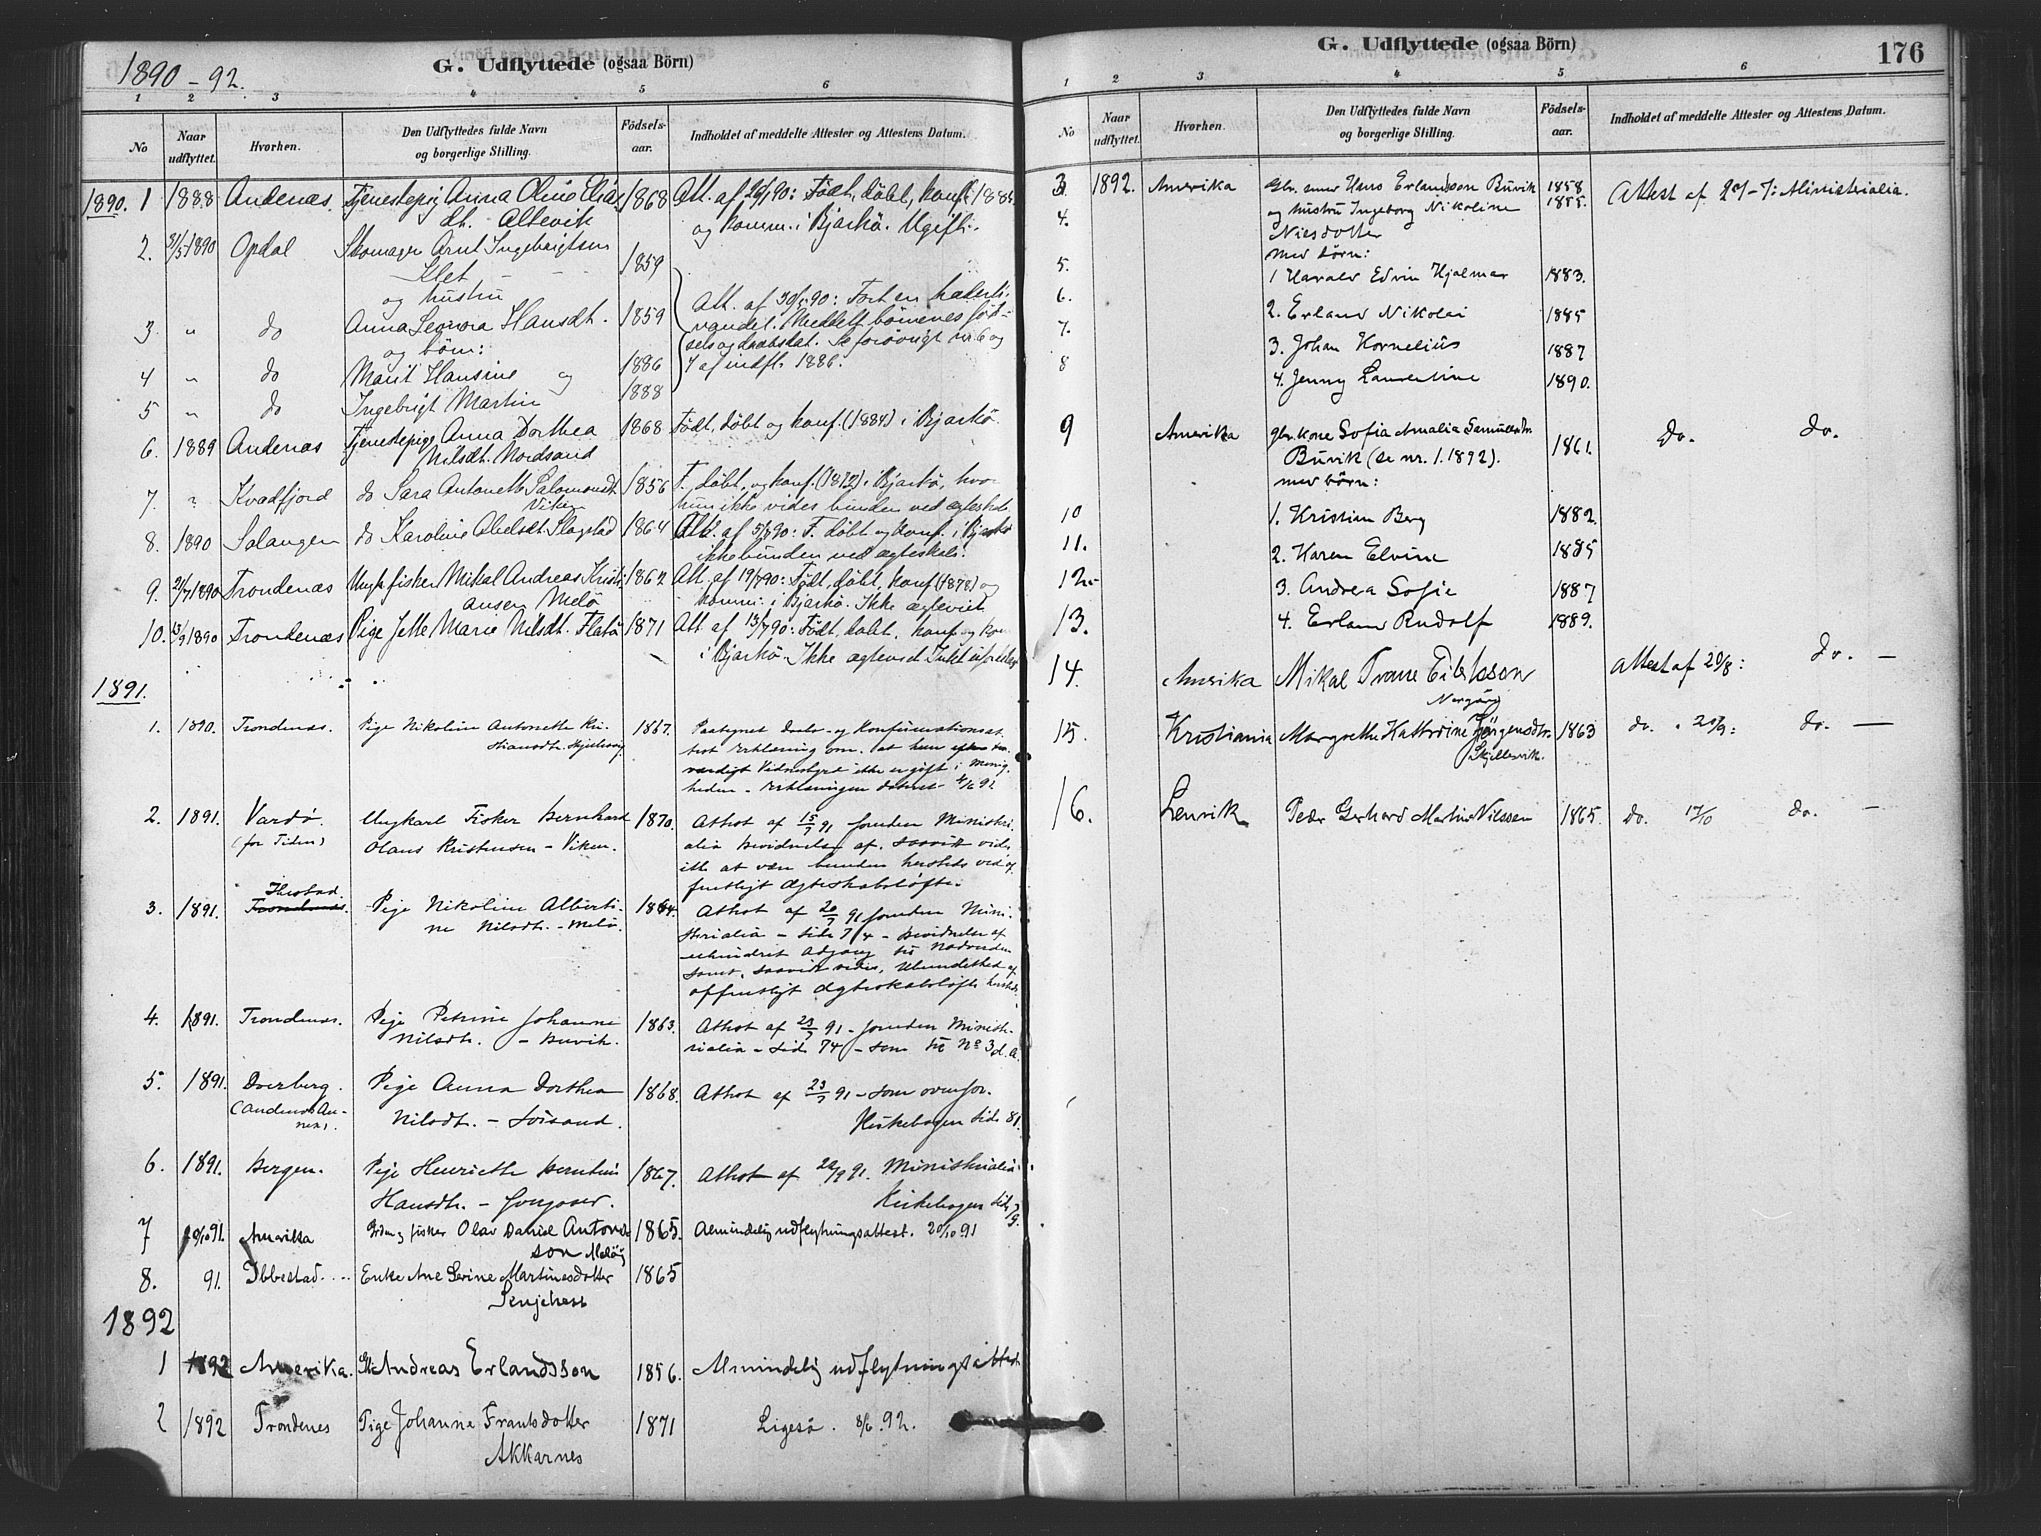 1890-92.
G. Udflyttede (ogsaa Börn)
1 2 3 4 5 6
No
Naar udflyttet.
Hvorhen.
Den Udflyttedes fulde Navn og borgerlige Stilling.
Födsels-aar.
Indholdet af meddelte Attester og Attestens Datum.
1890. 1 1888 Andenæs. Tjenestepig Anna Oline Elias 1868 Att. af
dt. Altevik og komm. i Bjarkö. Ugift.
2. 31/5 1890 Opdal Skomager Arnt Ingebrigtsen
Klet 1859
og hustru
3 " do Anna Leonora Hansdt. 1859 Att. af 30/5 90: Fört en hæderli.
og börn: vandel. Meddelt börnenes föd-
sels og daabsdat. Se forövrigt nr. 6 og
4 " do Marit Hansine og 1886 7 af indfl. 1886.
5 " do Ingebrigt Martin 1888
6. 1889 Andenæs Tjenestepige Anna Dorthea 1868 Födt, döbt og konf. (1884) i Bjarkö
Nilsdt. Nordsand
7. " Kvædfjord do Sara Antonette Salomonsdt. 1856 F. döbt, og konf. (1872) i Bjarkö, hvor
Viken hun ikke vides bunden ved ægteskab.
8. 1890 Salangen do Karoline Abelsdt. Slagstad 1864 Att. af 5/7 90: F. döbt og konf. i Bjarkö
ikke bunden ved ægteskab.
9. 21/7 1890 Trondenæs Ungk. fisker Mikal Andreas Kristi- 1862 Att. af 19/7 90: Födt, döbt, konf. (1878) og
ansen Melö komm. i Bjarkö. Ikke ægteviet
10. 13/9 1890 Trondenæs Pige Jette Marie Nilsdt. Flatö 1871 Att af 13/9 90: Födt, döbt, konf og kom
i Bjarkö. Ikke ægteviet
1891.
1. 1890. Trondenæs. Pige Nikoline Antonette Kri- 1867. Paategnet Daabs- og Konfirmationsat-
stiansdt. test Erklæring om, at hun efter tro-
værdigt Vidnesbyrd ikke er gift i Menig-
heden. Erklæringen dateret 4/6 91
2. 1891. Vardö. Ungkarl Fisker Bernhard 1870. Attest af 15/7 91 foruden Ministeri-
(for Tiden) Olaus Kristensen - Viken. alia Bevidnelse af, saavidt vides
ikke at være bunden hersteds ved of-
fentligt Ægteskabslöfte.
Ibestad.
3. 1891. Trondenæs. Pige Nikoline Alberti- 1864. Attest af 20/7 91 foruden Mini-
ne Nilsdt. - Melö. sterialia - side 74 - Bevidnelse af
uhindret Adgang til Nadverden
samt, saavidt vides, Ubundethed af
offentligt Ægteskabslöfte hersteds.
4. 1891. Trondenæs. Pige Petrine Johanne 1863. Attest af 23/7 91 - foruden Ministe-
Nilsdt. - Buvik. rialia - side 74 - som til No 3 d. A.
5. 1891. Dverberg. Pige Anna Dorthea 1868. Attest af 23/7 91 - som ovenfor.
(Andenæs An-
nex). Nilsdt. - Kirkebogen side 81.
6. 1891. Bergen. Pige Henriette Berntine 1867. Attest af 22/9 91. Ministerialia
Hansdt. - Kirkebogen side 79.
7 20/10 91. Amerika fisker Olav Daniel Antoni- 1865. Almindelig udflytningsattest. 20/10 91
son Melöy
8. 91. Ibbestad. Enke Ane Serine Martinesdotter 1865
Senjehest
1892
1 1892 Amerika. Andreas Erlandsson 1856. Almindelig udflytningsattest
2 1892 Trondenes Pige Johanna Frantsdotter 1871 Ligesö. 8/6. 92.
Akkarnes
G. Udflyttede (ogsaa Börn)
176
1 2 3 4 5 6
No
Naar udflyttet.
Hvorhen.
Den Udflyttedes fulde Navn og borgerlige Stilling.
Födsels-aar.
Indholdet af meddelte Attester og Attestens Datum.
3. 1892. Amerika Hans Erlandson Buvik 1858. Attest af Ministerialia.
4. og hustru Ingeborg Nikoline 1855.
Nilsdotter
med börn:
5. 1 Harald Edvin Hjalmar 1883.
6. 2. Erland Nikolai 1885
7. 3. Johan Kornelius 1887
8 4. Jenny Laurentine 1890.
9 Amerika gbr. kone Sofia Amalia Samuelsdtr. 1861. do. do.
Buvik (se nr. 1. 1892).
med börn:
10 1. Kristian Berg 1882.
11. 2. Karen Elvine 1885
12. 3. Andrea Sofie 1887
13. 4. Erland Rudolf 1889.
14. Amerika Mikal Trane Eilertsson Attest af 20/8: do. -
Nergård
15. Kristiania Margrethe Kathrine Jörgensdtr. 1863 do. " 20/9: do. -
Skjellesvik.
16. Lenvik Peder Gerhard Martin Nilssen 1865. do. 17/10 do. -